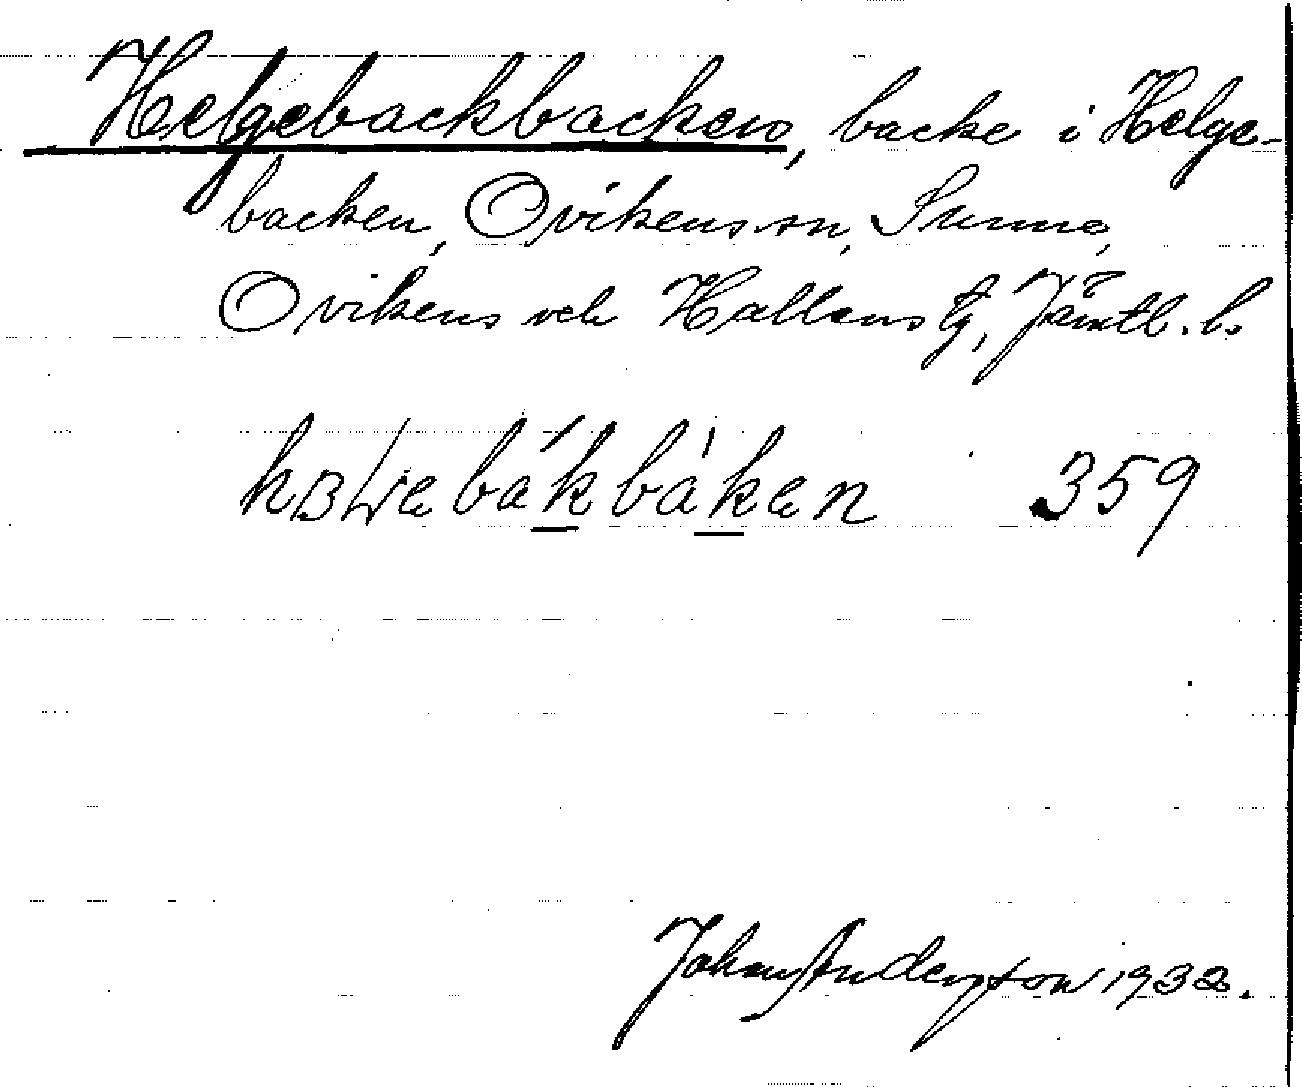 Helgebackbacken, backe i Helge-
backen, Ovikens sn, Sunne,
Ovikens och Hallens tg, Jämtl. l.
bákbákan 359
Johan Anderson 1932.